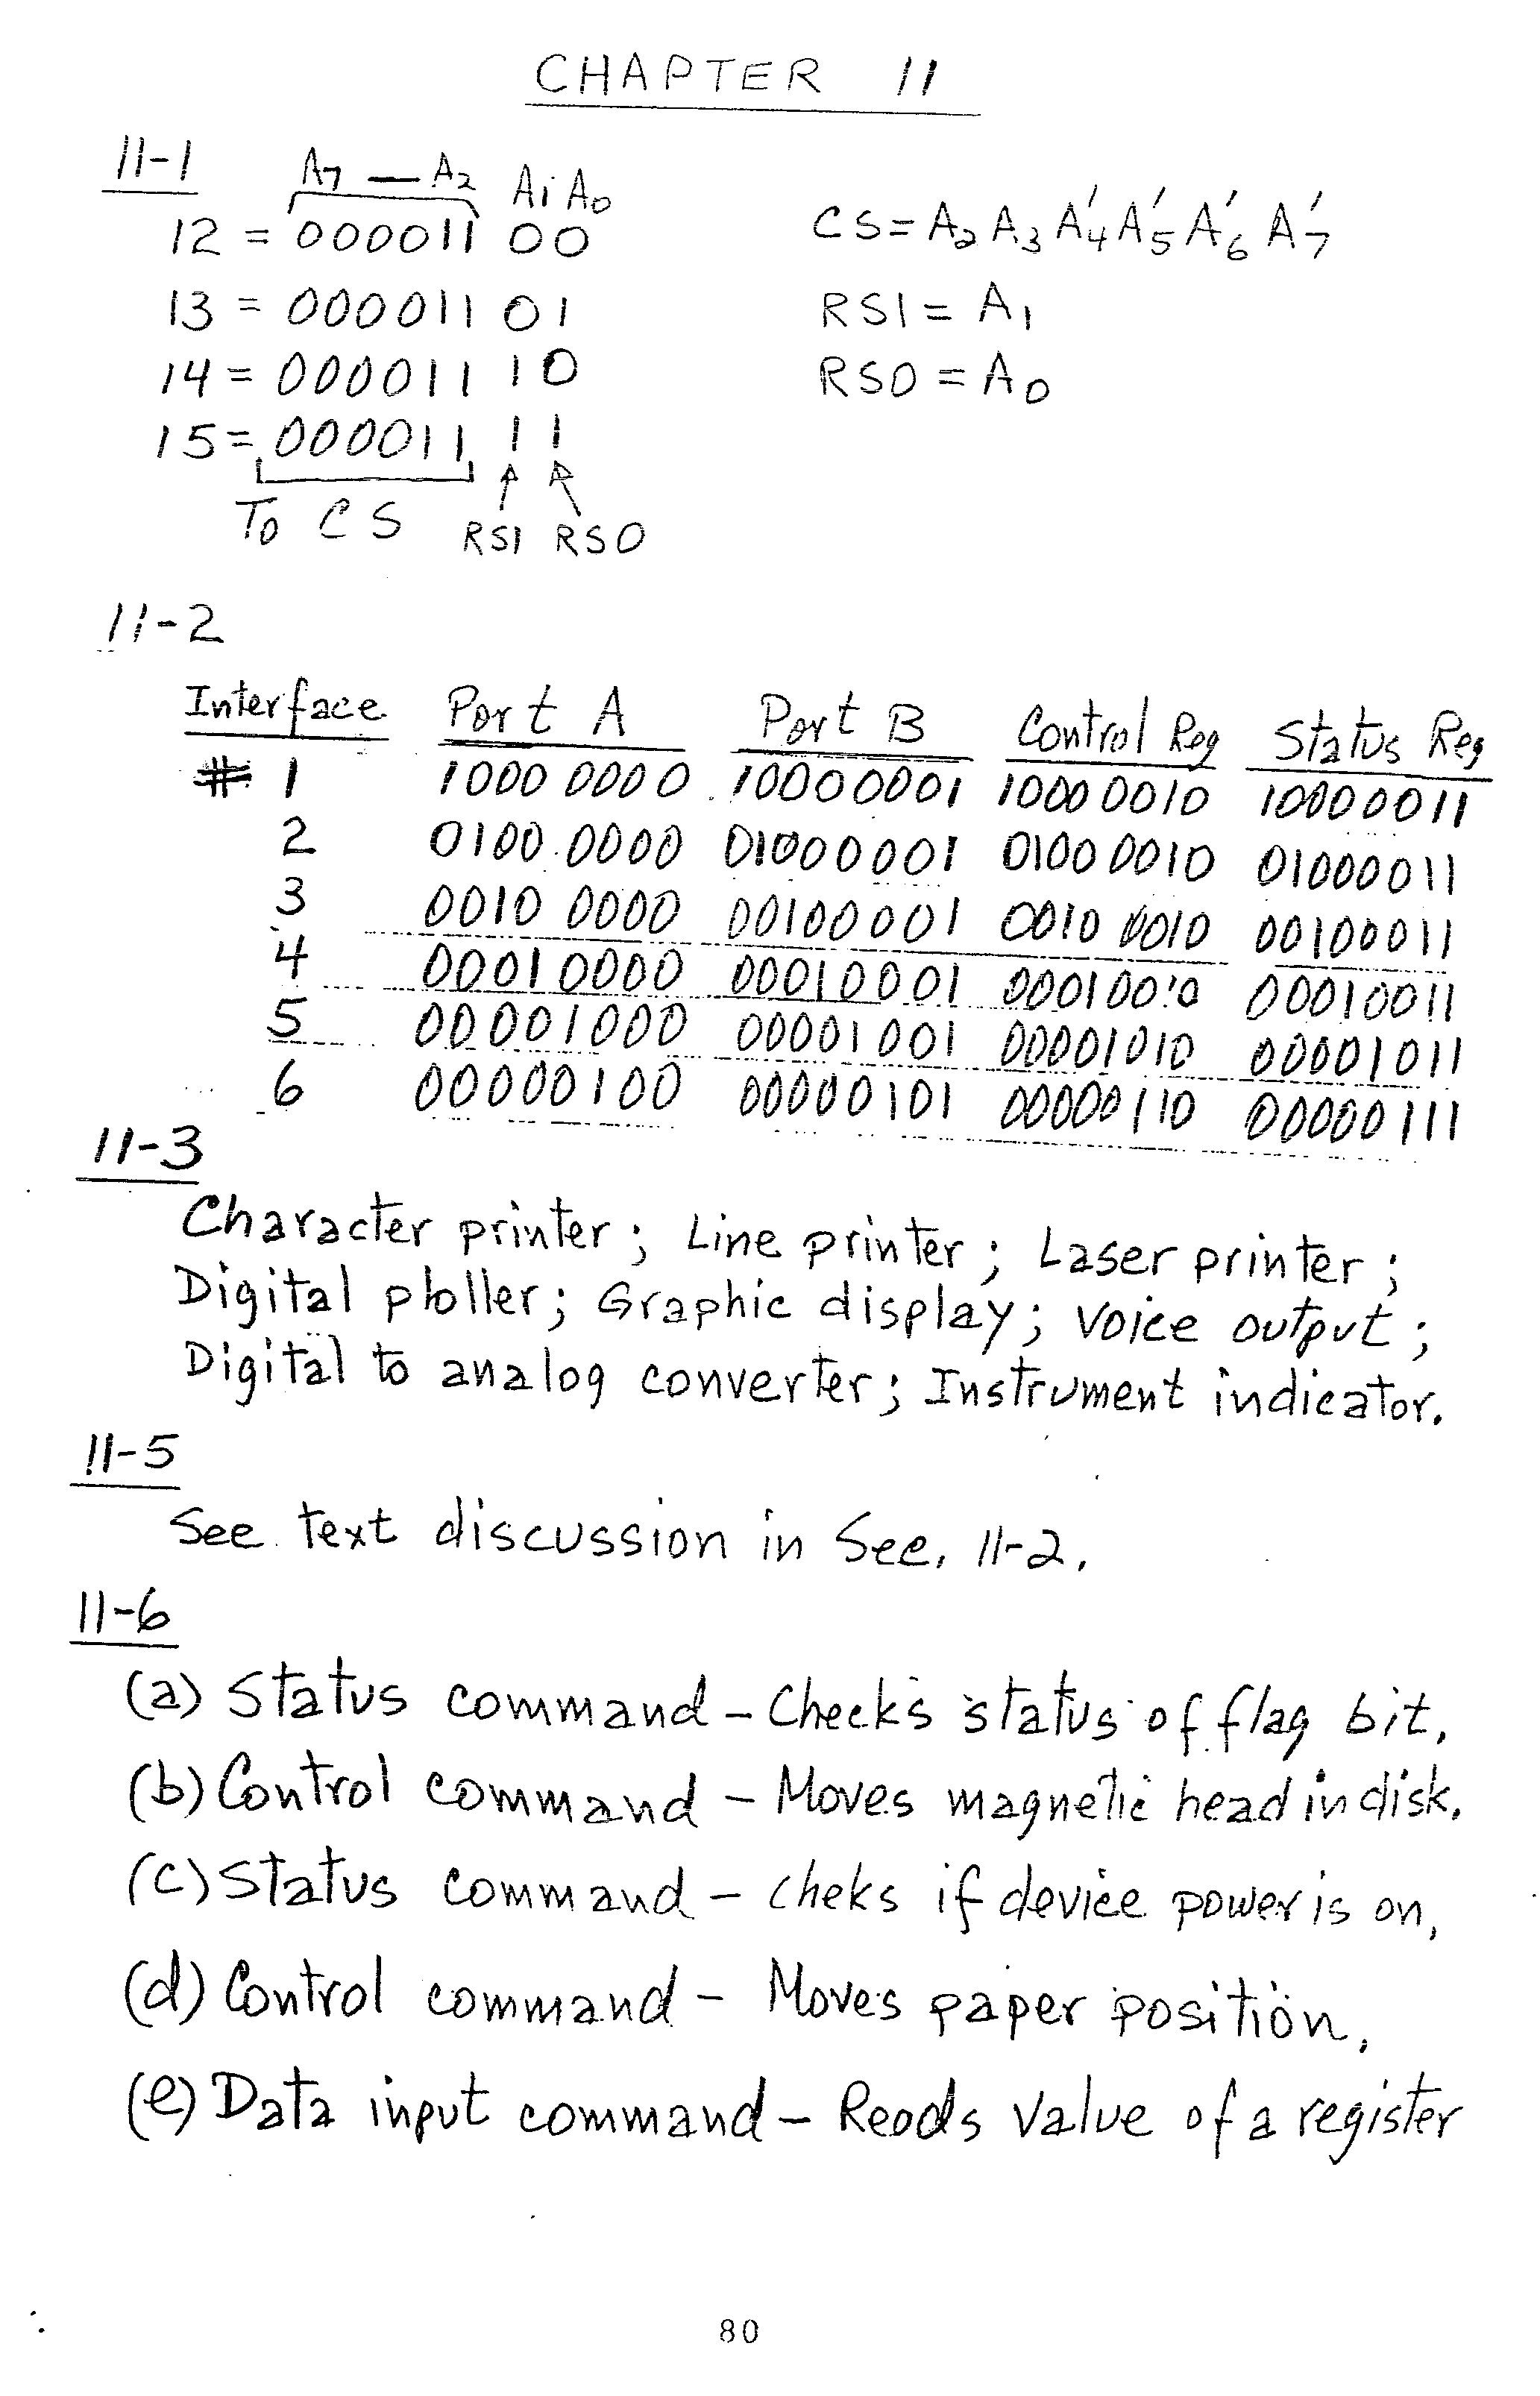 CHAPTER 11
11-1
A7 — A2 A1 A0
12 = 000011 00 CS = A2 A3 A'4 A'5 A'6 A'7
13 = 000011 01 RS1 = A1
14 = 000011 10 RS0 = A0
15 = 000011 11
To CS RS1 RS0
11-2
Interface Port A Port B Control Reg Status Reg
# 1 1000 0000 10000001 1000 0010 10000011
2 0100 0000 01000001 0100 0010 01000011
3 0010 0000 00100001 0010 0010 00100011
4 00010000 00010001 00010010 00010011
5 00001000 00001001 00001010 00001011
6 00000100 00000101 00000110 00000111
11-3
Character printer; Line printer; Laser printer;
Digital plotter; Graphic display; Voice output;
Digital to analog converter; Instrument indicator.
11-5
See text discussion in Sec. 11-2.
11-6
(a) Status command - Checks status of flag bit.
(b) Control command - Moves magnetic head in disk.
(c) Status command - cheks if device power is on.
(d) Control command - Moves paper position.
(e) Data input command - Reads value of a register
80